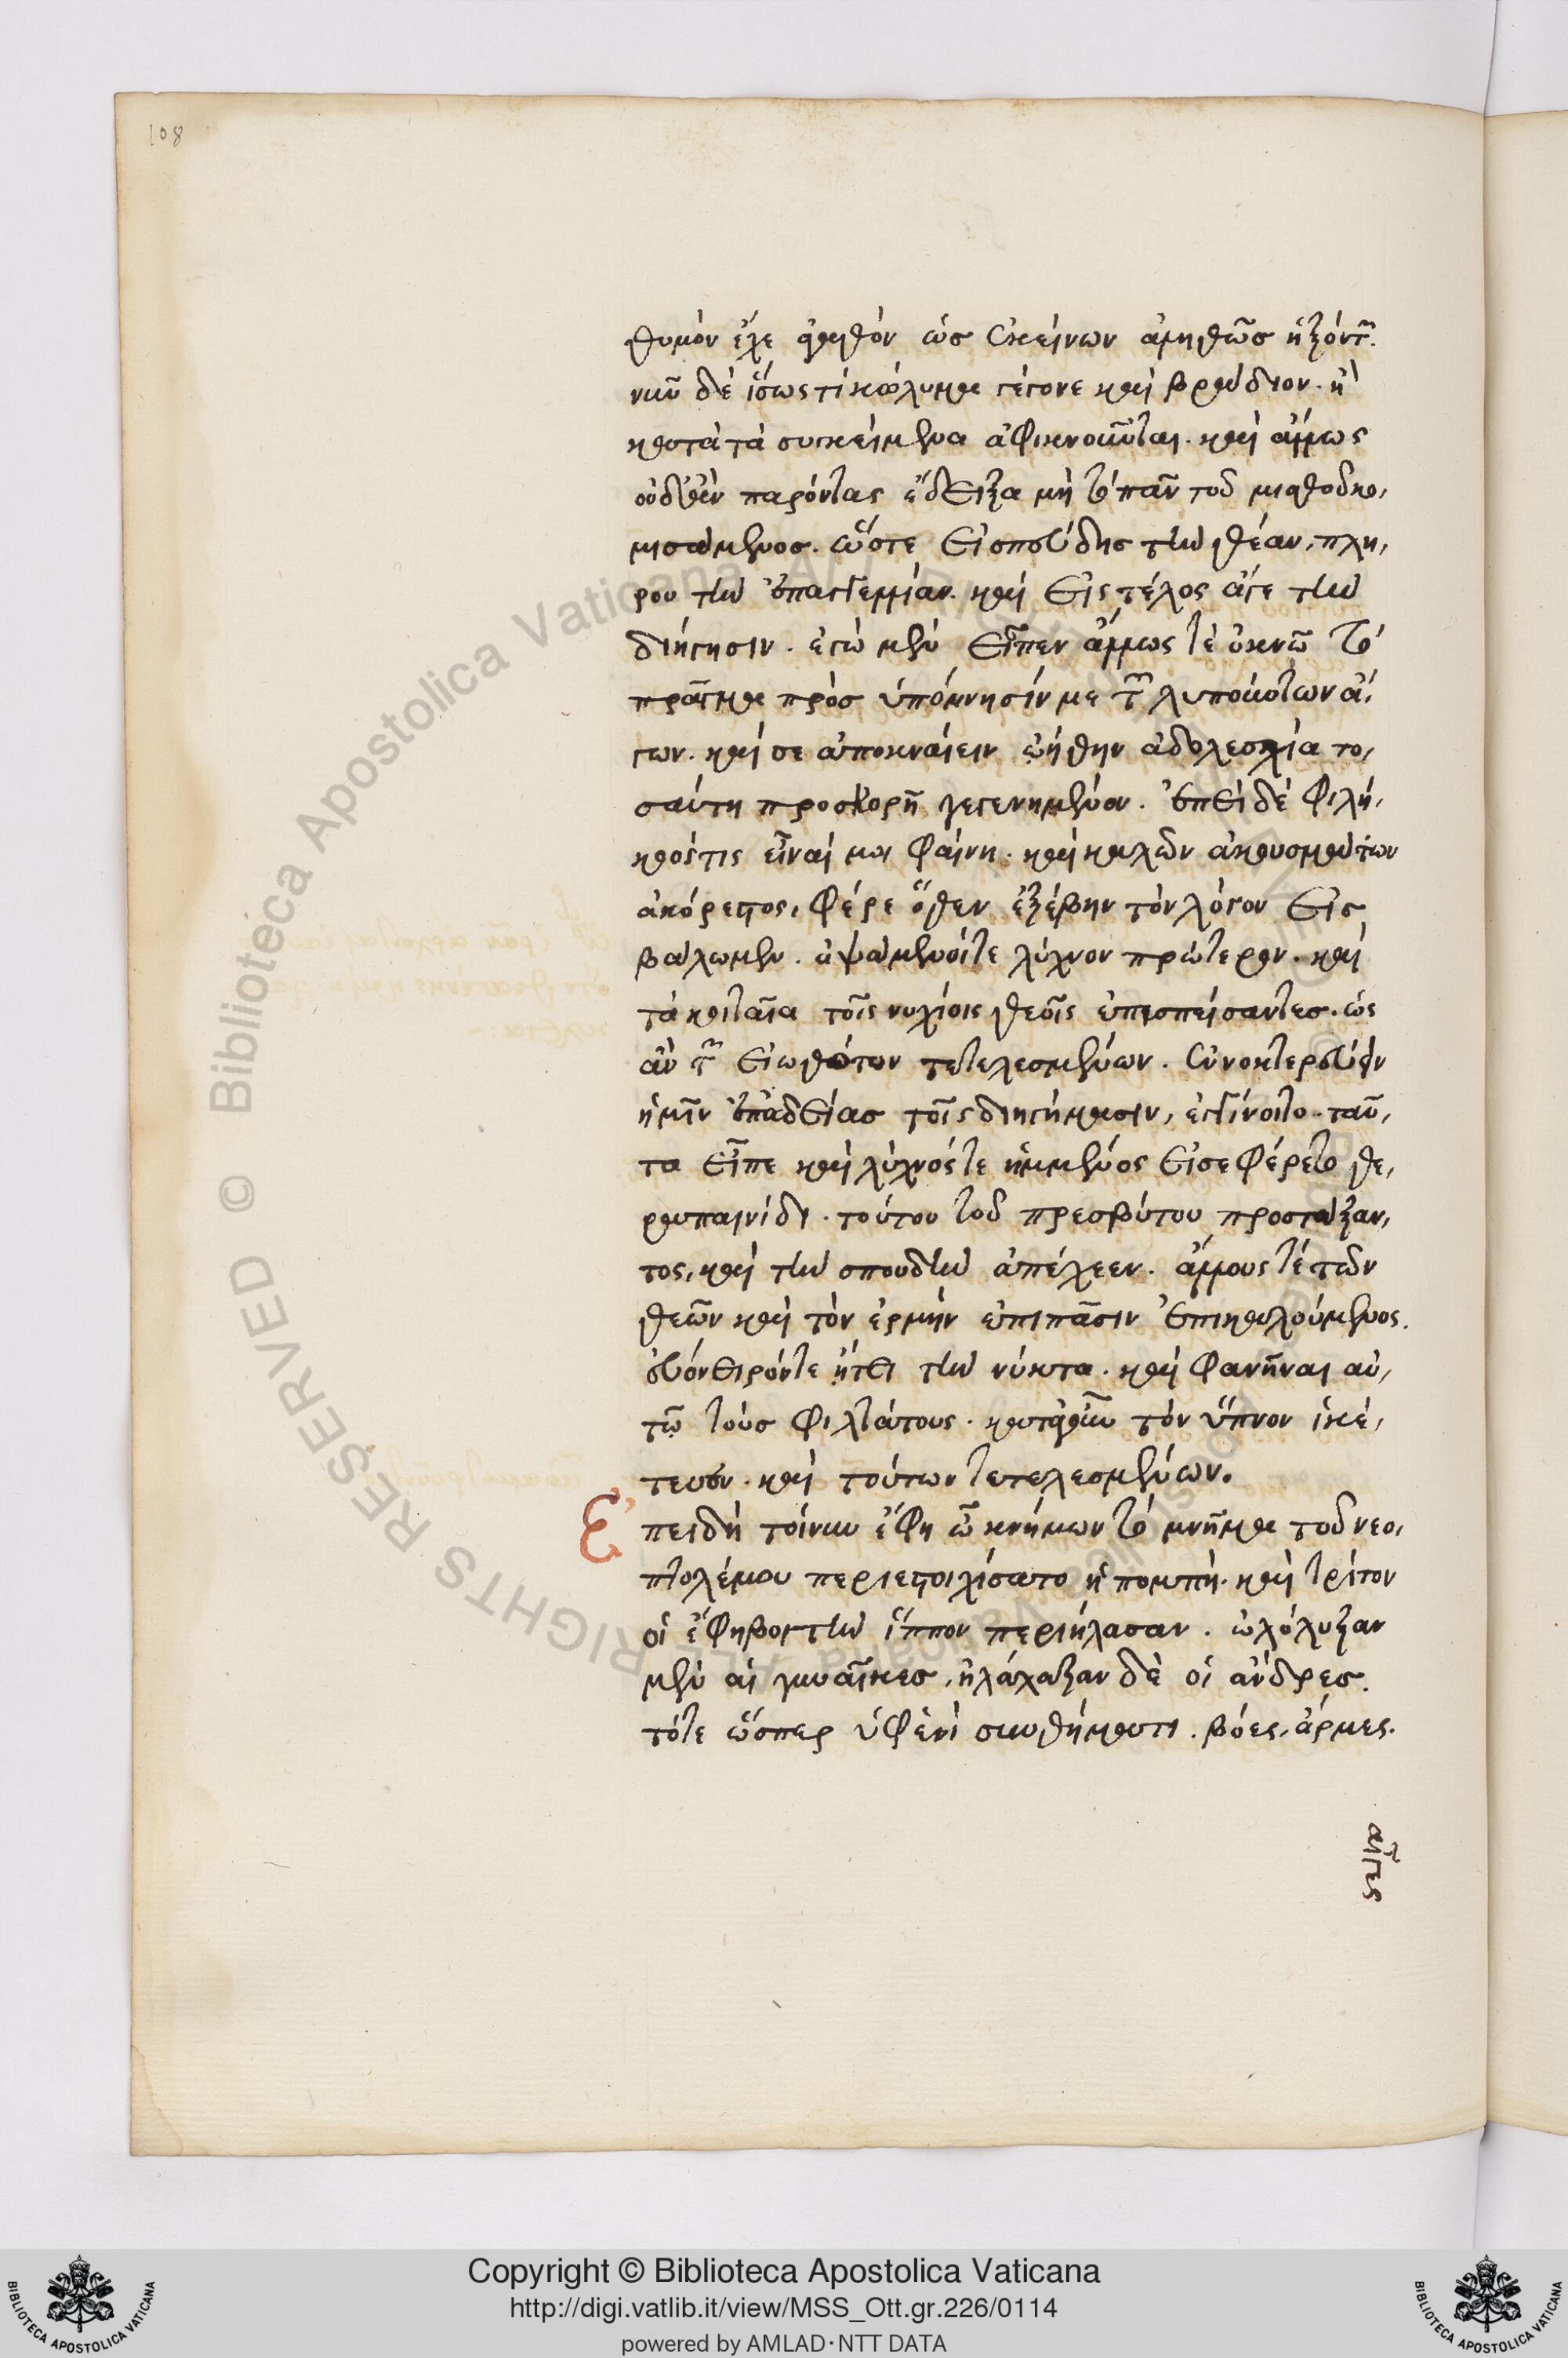 108
θυμὸν ἔχε ἀγαθὸν ὡς ἐκείνων ἀληθῶς ἡξόντων.
νῦν δὲ ἴσως τὶ κώλυμα γέγονε καὶ βράδιον. ἢ
κατὰ τὰ συγκείμενα ἀφικνοῦνται. καὶ ἄλλως
οὐδ' ἂν παρόντας ἔδειξα μὴ τὸ πᾶν τοῦ μισθοῦ κο,
μισάμενος. ὥστε εἰ σπεύδης τὴν θέαν, πλη,
ρου τὴν ἐπαγγελλίαν. καὶ εἰς τέλος ἄγε τὴν
διήγησιν. ἐγὼ μὲν εἶπεν ἄλλως τὲ ὀκνῶ τὸ
πρᾶγμα πρὸς ὑπόμνησίν με τῶν λυπούντων ἄ,
γων. καί σε ἀποκναίειν ᾠήθην ἀδολεσχία το,
σαύτη προσκορῆ γεγενημένον. ἐπεὶ δὲ φιλή,
κοός τις εἶναί μοι φαίνη. καὶ καλῶν ἀκουσμάτων
ἀκόρεστος, φέρε ὅθεν ἐξέβην τὸν λόγον εἰς
βάλωμεν. ἁψάμενοί τε λύχνον πρώτερον. καὶ
τὰ κοιταῖα τοῖς νυχίοις θεοῖς ἐπισπείσαντες. ὡς
ἂν τῶν εἰωθότων τετελεσμένων. ἐννυκτερεύειν
ἡμῖν ἐπ' ἀδείας τοῖς διηγήμασιν, ἐγγίνοιτο. ταῦ,
τα εἶπε καὶ λύχνός τε ἡμμένος εἰσεφέρετο θε,
ραπαινίδι. τούτου τοῦ πρεσβύτου προστάξαν,
τος, καὶ τὴν σπονδὴν ἀπέχεεν. ἄλλους τέ τῶν
θεῶν καὶ τὸν ἑρμὴν ἐπι πᾶσιν ἐπικαλούμενος.
εὐόνειρόν τε ἤτει τὴν νύκτα. καὶ φανῆναι αὐ,
τῶ τοὺς φιλτάτους. κατὰ γοῦν τὸν ὕπνον ἱκέ,
τευεν. καὶ τούτων τετελεσμένων.
Ἐπειδὴ τοίνυν ἔφη ὦ κνήμων τὸ μνῆμα τοῦ νεο,
πτολέμου περιεστοιχίσατο ἡ πομπή. καὶ τρίτον
οἱ ἔφηβοι τὴν ἵππον περιήλασαν. ὠλόλυξαν
μὲν αἱ γυναῖκες, ἠλάλαξαν δὲ οἱ ἄνδρες.
τότε ὥσπερ ὑφ' ἑνὶ συνθήματι. βόες, ἄρνες.
αἶγες
Copyright © Biblioteca Apostolica Vaticana
http://digi.vatlib.it/view/MSS_Ott.gr.226/0114
powered by AMLAD·NTT DATA